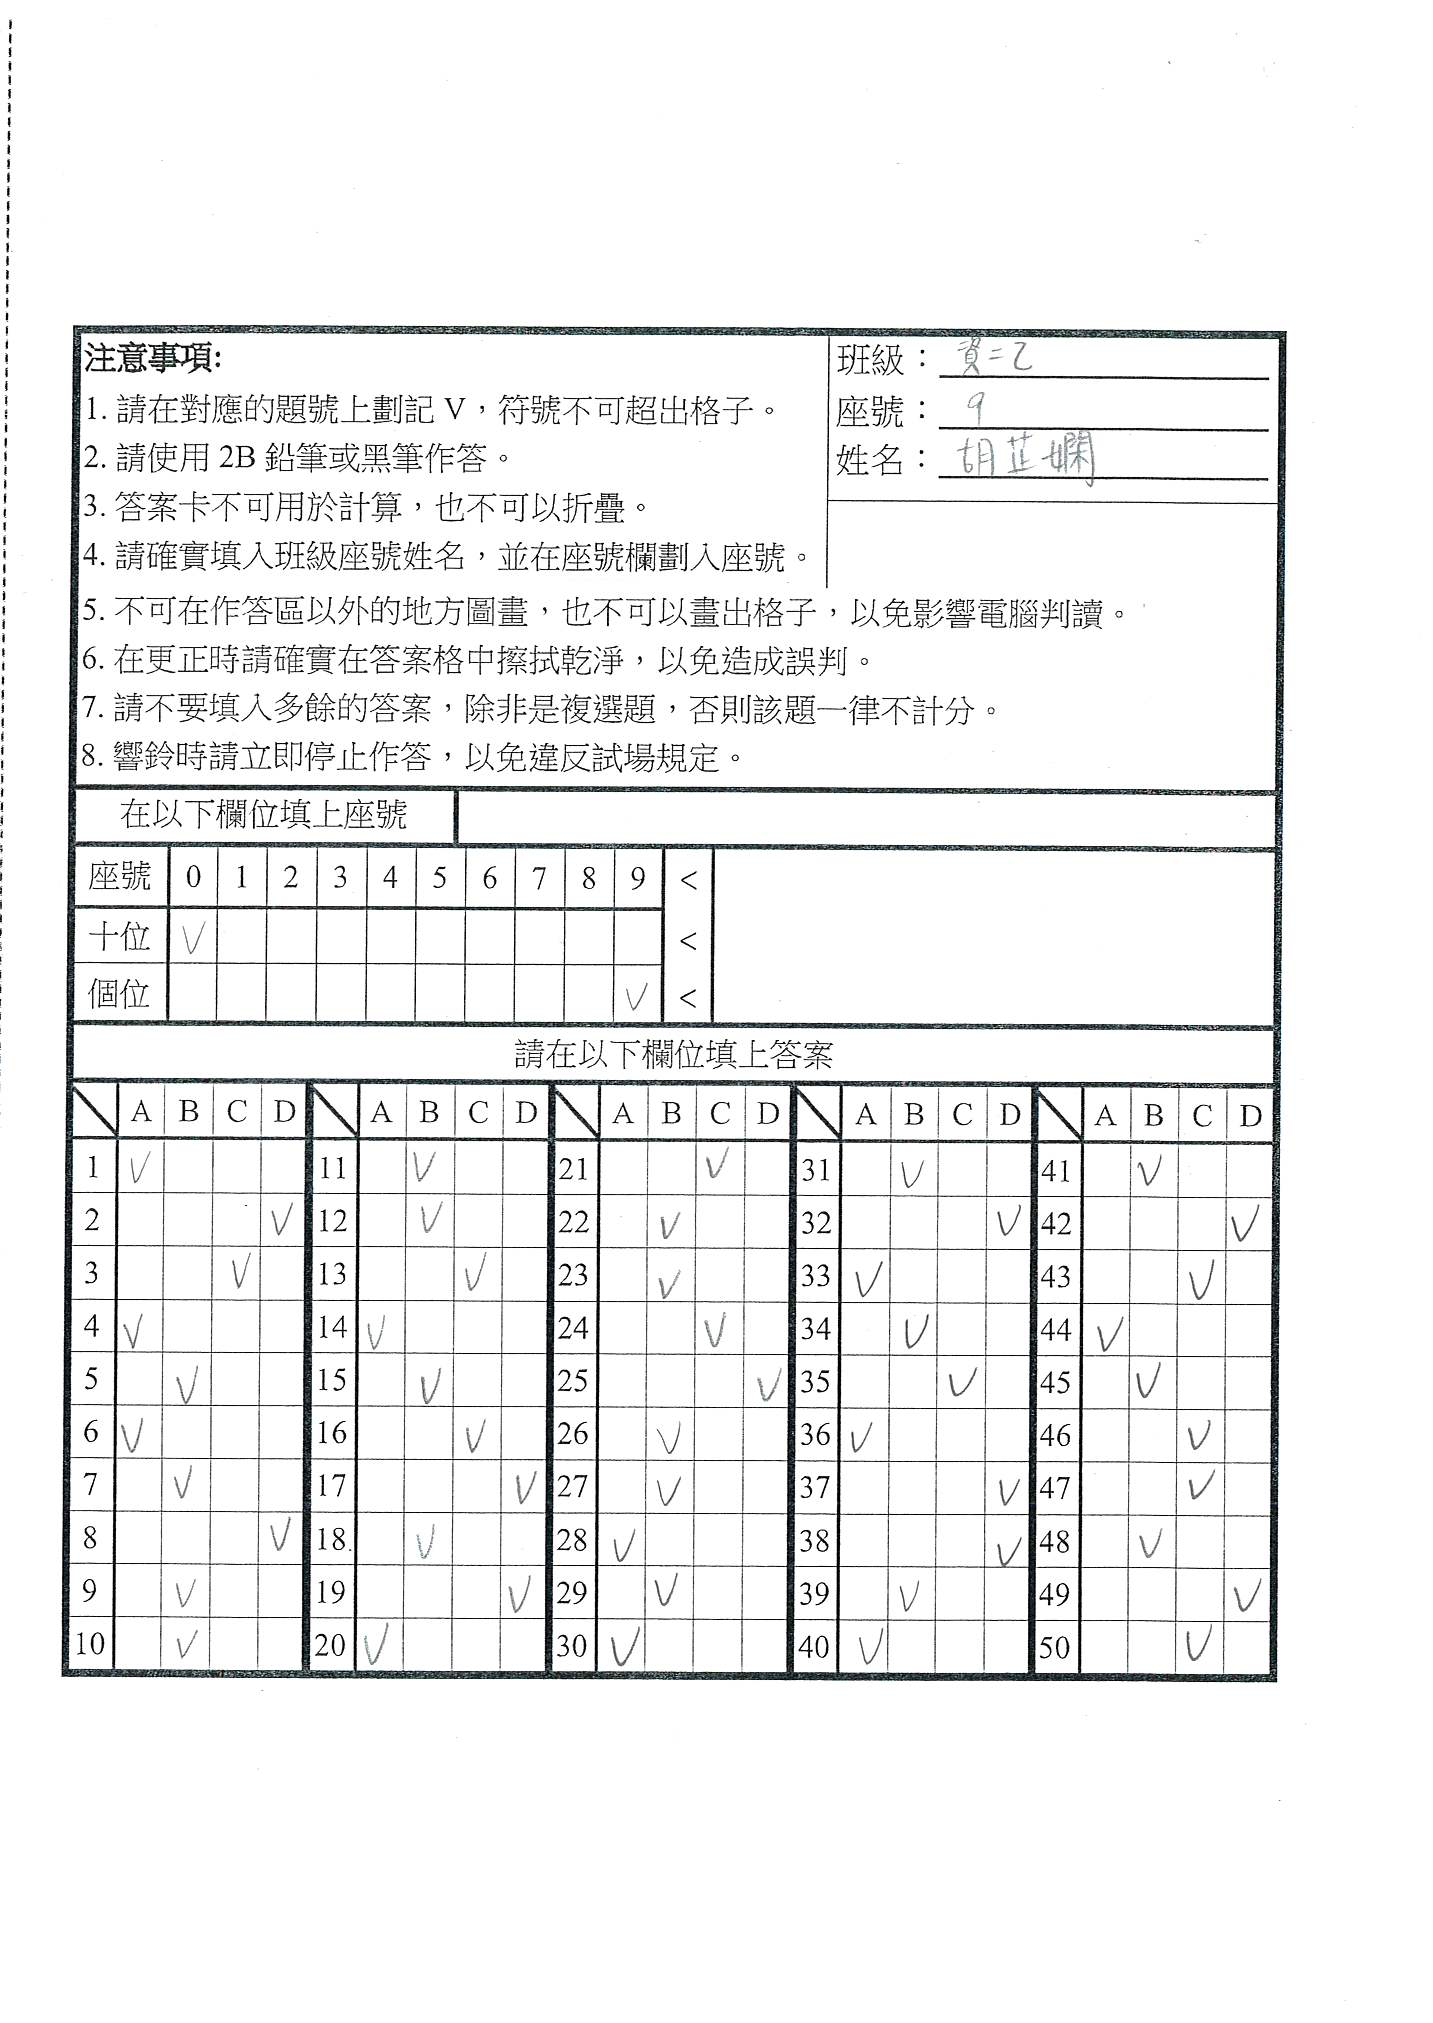 注意事項:
1. 請在對應的題號上劃記 V，符號不可超出格子。
2. 請使用 2B 鉛筆或黑筆作答。
3. 答案卡不可用於計算，也不可以折疊。
4. 請確實填入班級座號姓名，並在座號欄劃入座號。
5. 不可在作答區以外的地方圖畫，也不可以畫出格子，以免影響電腦判讀。
6. 在更正時請確實在答案格中擦拭乾淨，以免造成誤判。
7. 請不要填入多餘的答案，除非是複選題，否則該題一律不計分。
8. 響鈴時請立即停止作答，以免違反試場規定。
班級：資二乙
座號：9
姓名：胡芷嫻
在以下欄位填上座號
座號 0 1 2 3 4 5 6 7 8 9 <
十位 V <
個位 V <
請在以下欄位填上答案
A B C D A B C D A B C D A B C D A B C D
1 V 11 V 21 V 31 V 41 V
2 V 12 V 22 V 32 V 42 V
3 V 13 V 23 V 33 V 43 V
4 V 14 V 24 V 34 V 44 V
5 V 15 V 25 V 35 V 45 V
6 V 16 V 26 V 36 V 46 V
7 V 17 V 27 V 37 V 47 V
8 V 18 V 28 V 38 V 48 V
9 V 19 V 29 V 39 V 49 V
10 V 20 V 30 V 40 V 50 V